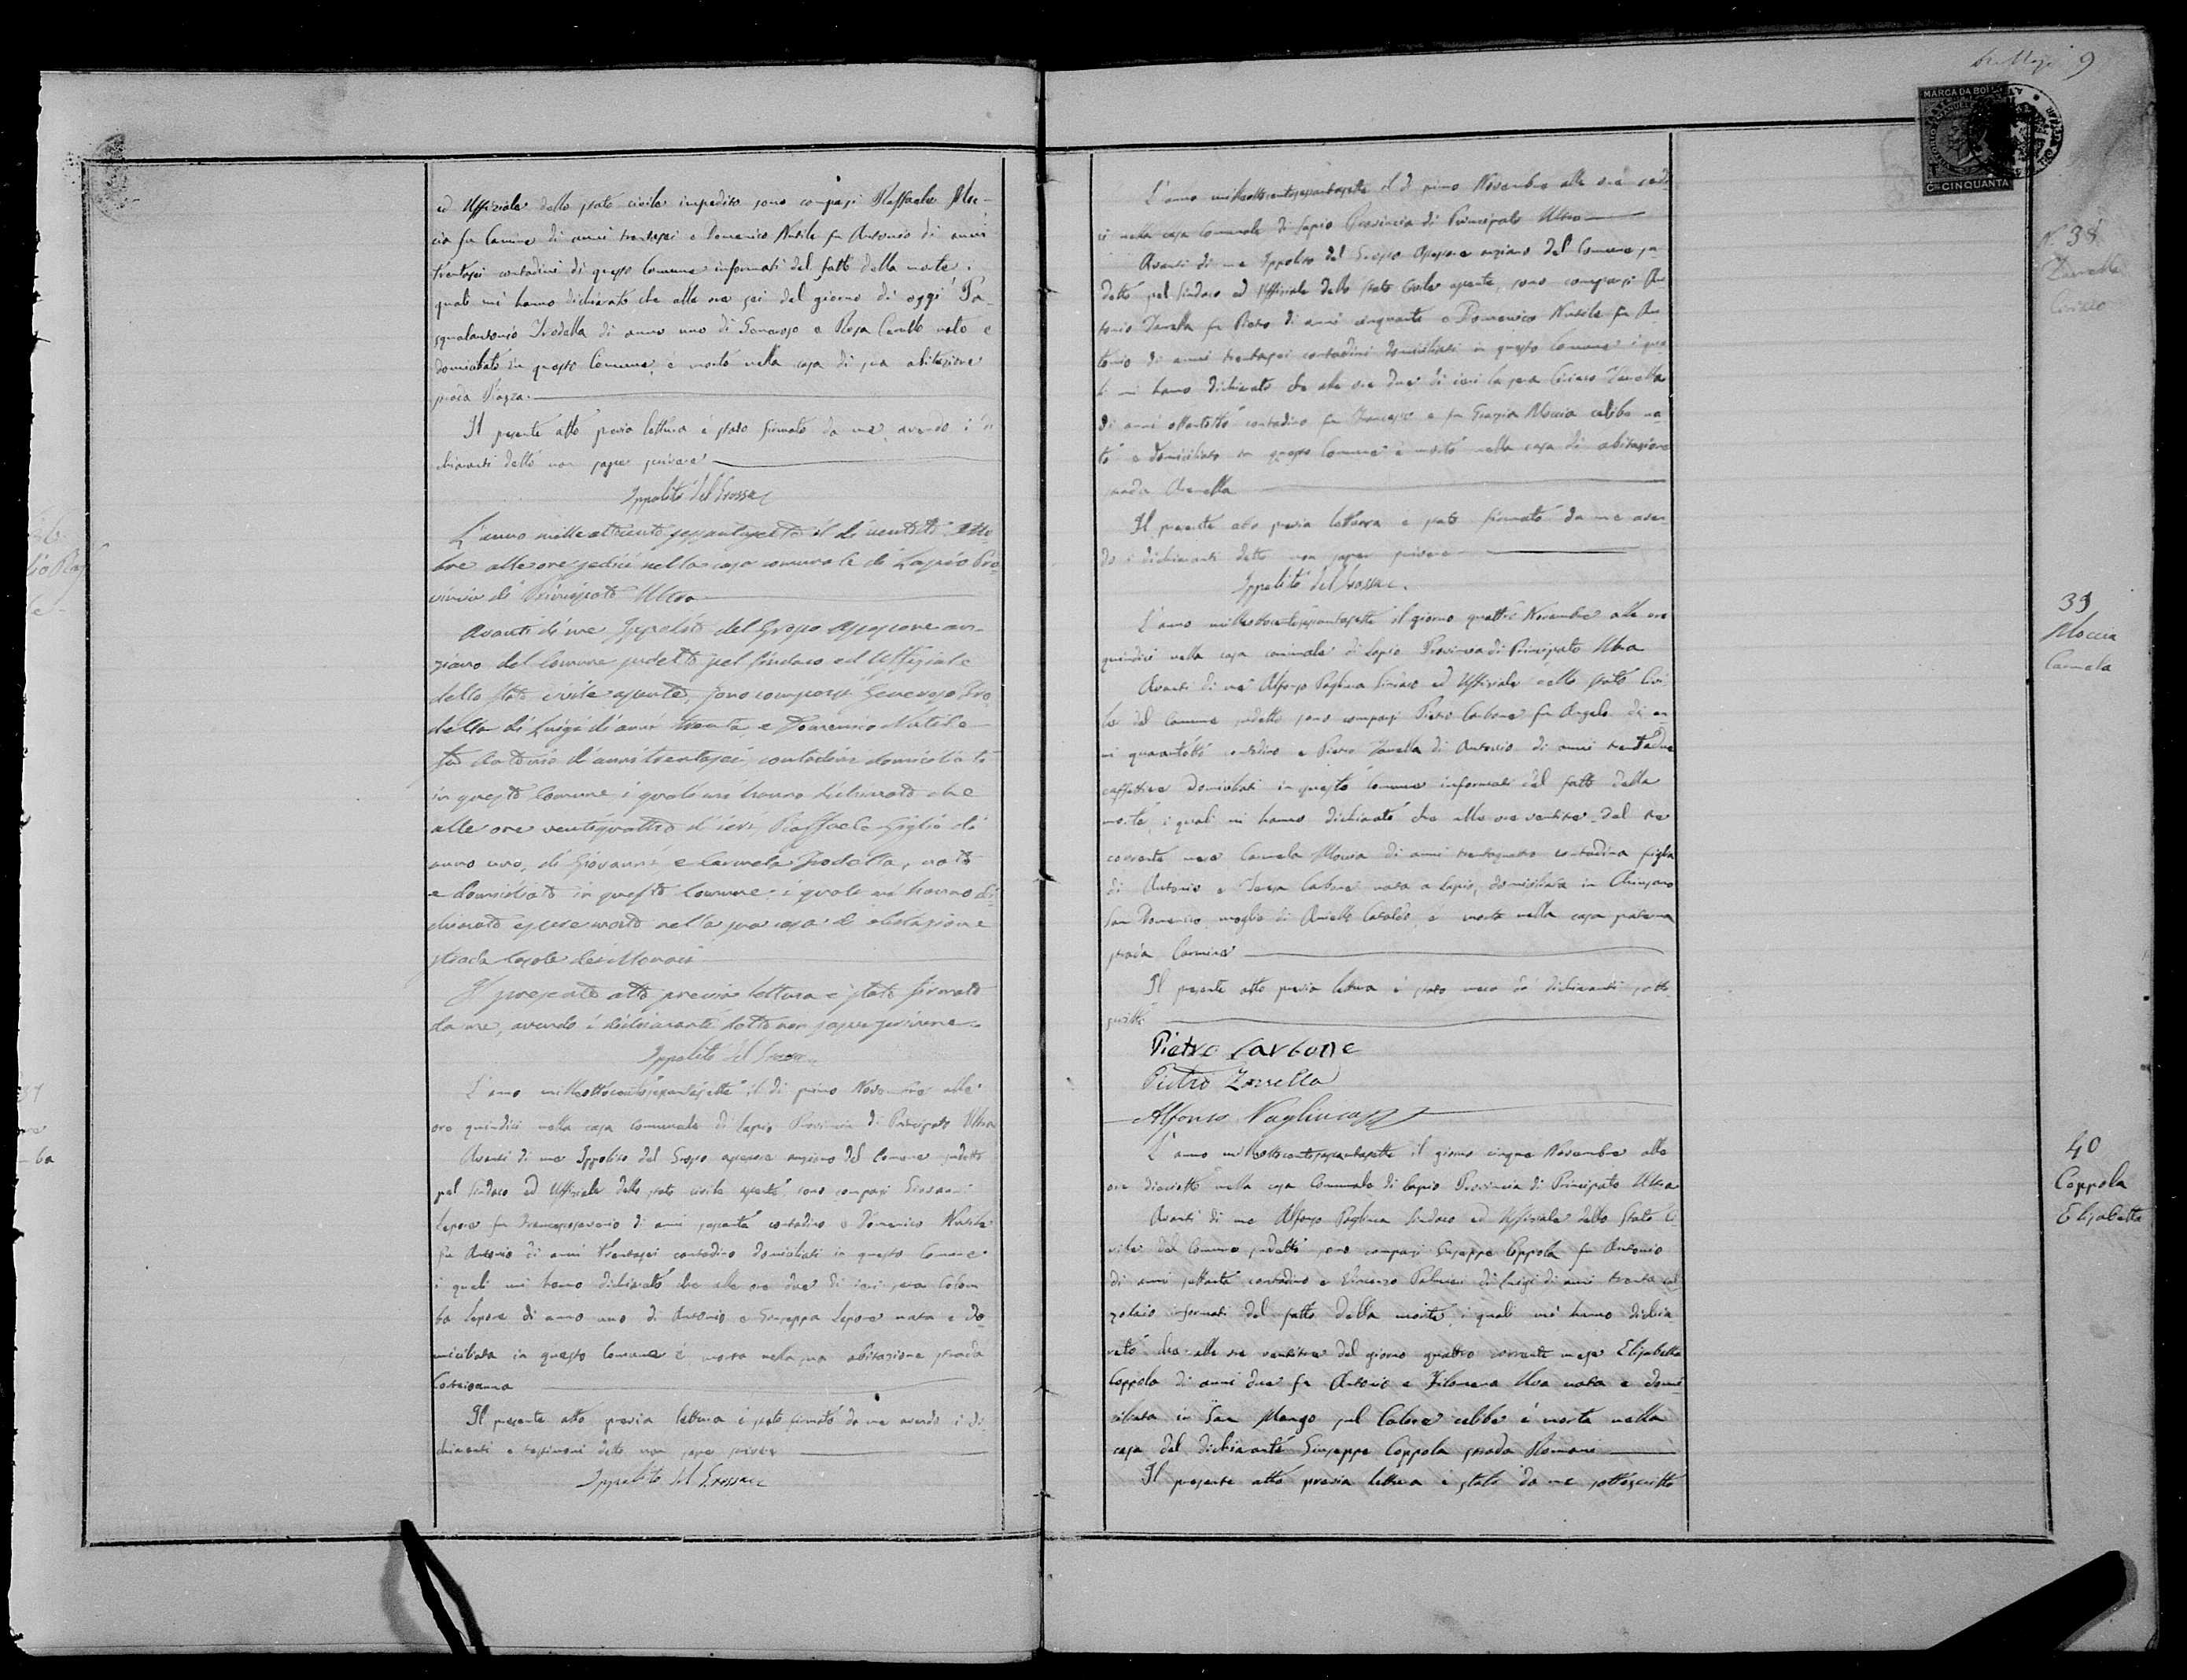 ed Uffiziale dello stato civile impedito sono comparsi Raffaele Moc-
cia fu Carmine di anni trentasei e Domenico Natale fu Antonio di anni
trentasei contadini di questo Comune informati del fatto della morte i
quali mi hanno dichiarato che alle ore sei del giorno di oggi Pa-
squalantonio Trodella di anno uno di Generoso e Rosa Carullo nato e
domiciliato in questo Comune, è morto nella casa di sua abitazione
strada Piazza.
Il presente atto previa lettura è stato firmato da me avendo i di
chiaranti detto non saper scrivere
Ippolito del Grosso
L'anno milleottocentosessantasette il dì ventotto Otto-
bre alle ore sedici nella casa comunale di Lapio Pro-
vincia di Principato Ultra
Avanti di me Ippolito del Grosso Assessore an-
ziano del Comune sudetto pel Sindaco ed Uffiziale
dello Stato civile assente, sono comparsi Generoso Tro-
della di Luigi di anni trenta e Domenico Natale
fu Antonio di anni trentasei, contadini domiciliati
in questo Comune i quali mi hanno dichiarato che
alle ore ventiquattro d'ieri, Raffaele Giglio di
anno uno, di Giovanni e Carmela Trodella, nato
e domiciliato in questo Comune: i quali mi hanno di-
chiarato essere morto nella sua casa di abitazione
strada Casale dei Monaci
Il presente atto previa lettura è stato firmato
da me, avendo i dichiaranti detto non saper scrivere.
Ippolito del Grosso
L'anno milleottocentosessantasette il dì primo Novembre alle
ore quindici nella casa Comunale di Lapio Provincia di Principato Ultra
Avanti di me Ippolito del Grosso assessore anziano del Comune sudetto
pel Sindaco ed Uffiziale dello stato civile assente, sono comparsi Giovanni
Lepore fu Francescosaverio di anni sessanta contadino e Domenico Natale
fu Antonio di anni trentasei contadino domiciliati in questo Comune
i quali mi hanno dichiarato che alle ore due di ieri sera Colom
ba Lepore di anno uno di Antonio e Giuseppa Lepore nata e do-
miciliata in questo Comune è morta nella sua abitazione strada
Il presente atto previa lettura è stato firmato da me avendo i di
chiaranti e testimoni detto non saper scrivere
Ippolito del Grosso
9
MARCA DA BOLLO
Cmi CINQUANTA
L'anno milleottocentosessantasette il dì primo Novembre alle ore sedi
ci nella casa Comunale di Lapio Provincia di Principato Ultra
Avanti di me Ippolito del Grosso Assessore anziano del Comune su
detto pel Sindaco ed Uffiziale dello stato Civile assente, sono comparsi An
tonio Zarrella fu Pietro di anni cinquanta e Domenico Natale fu An
tonio di anni trentasei contadini domiciliati in questo Comune i qua
li mi hanno dichiarato che alle ore due di ieri la sera Ciriaco Zarrella
di anni ottantotto contadino fu Francesco e fu Grazia Moccia celibe na
to e domiciliato in questo Comune è morto nella casa di abitazione
strada
Il presente atto previa lettura è stato firmato da me aven
do i dichiaranti detto non saper scrivere
Ippolito del Grosso.
N. 38
Zarrella
Ciriaco
L'anno milleottocentosessantasette il giorno quattro Novembre alle ore
quindici nella casa comunale di Lapio Provincia di Principato Ultra
Avanti di me Alfonso Pagliuca Sindaco ed Uffiziale dello stato Ci
vile del Comune sudetto sono comparsi Pietro Carbone fu Angelo di an
ni quarantotto contadino e Pietro Zarrella di Antonio di anni trentadue
caffettiere domiciliati in questo Comune informati del fatto della
morte, i quali mi hanno dichiarato che alle ore ventitre del tre
corrente mese Carmela Moccia di anni trentaquattro contadina figlia
di Antonio e Carbone nata a Lapio, domiciliata in Chiusano
San Domenico moglie di Aniello Cataldo, è morta nella casa paterna
strada Carmine
Il presente atto previa lettura è stato meco da' dichiaranti sotto
scritto
Pietro Carbone
Pietro Zarrella
Alfonso Pagliuca
39
Moccia
Carmela
L'anno milleottocentosessantasette il giorno cinque Novembre alle
ore diciotto nella casa Comunale di Lapio Provincia di Principato Ultra
Avanti di me Alfonso Pagliuca Sindaco ed Uffiziale dello Stato Ci
vile del Comune sudetto sono comparsi Giuseppe Coppola fu Antonio
di anni settanta contadino e Vincenzo Palmieri di Luigi di anni trenta cal
zolaio informati del fatto della morte, i quali mi hanno dichia
rato che alle ore ventitre del giorno quattro corrente mese Elisabetta
Coppola di anni due fu Antonio e Filomena Uva nata e domi
ciliata in San Mango sul Calore celibe è morta nella
casa del dichiarante Giuseppe Coppola strada Romani
Il presente atto previa lettura è stato da me sottoscritto
40
Coppola
Elisabetta